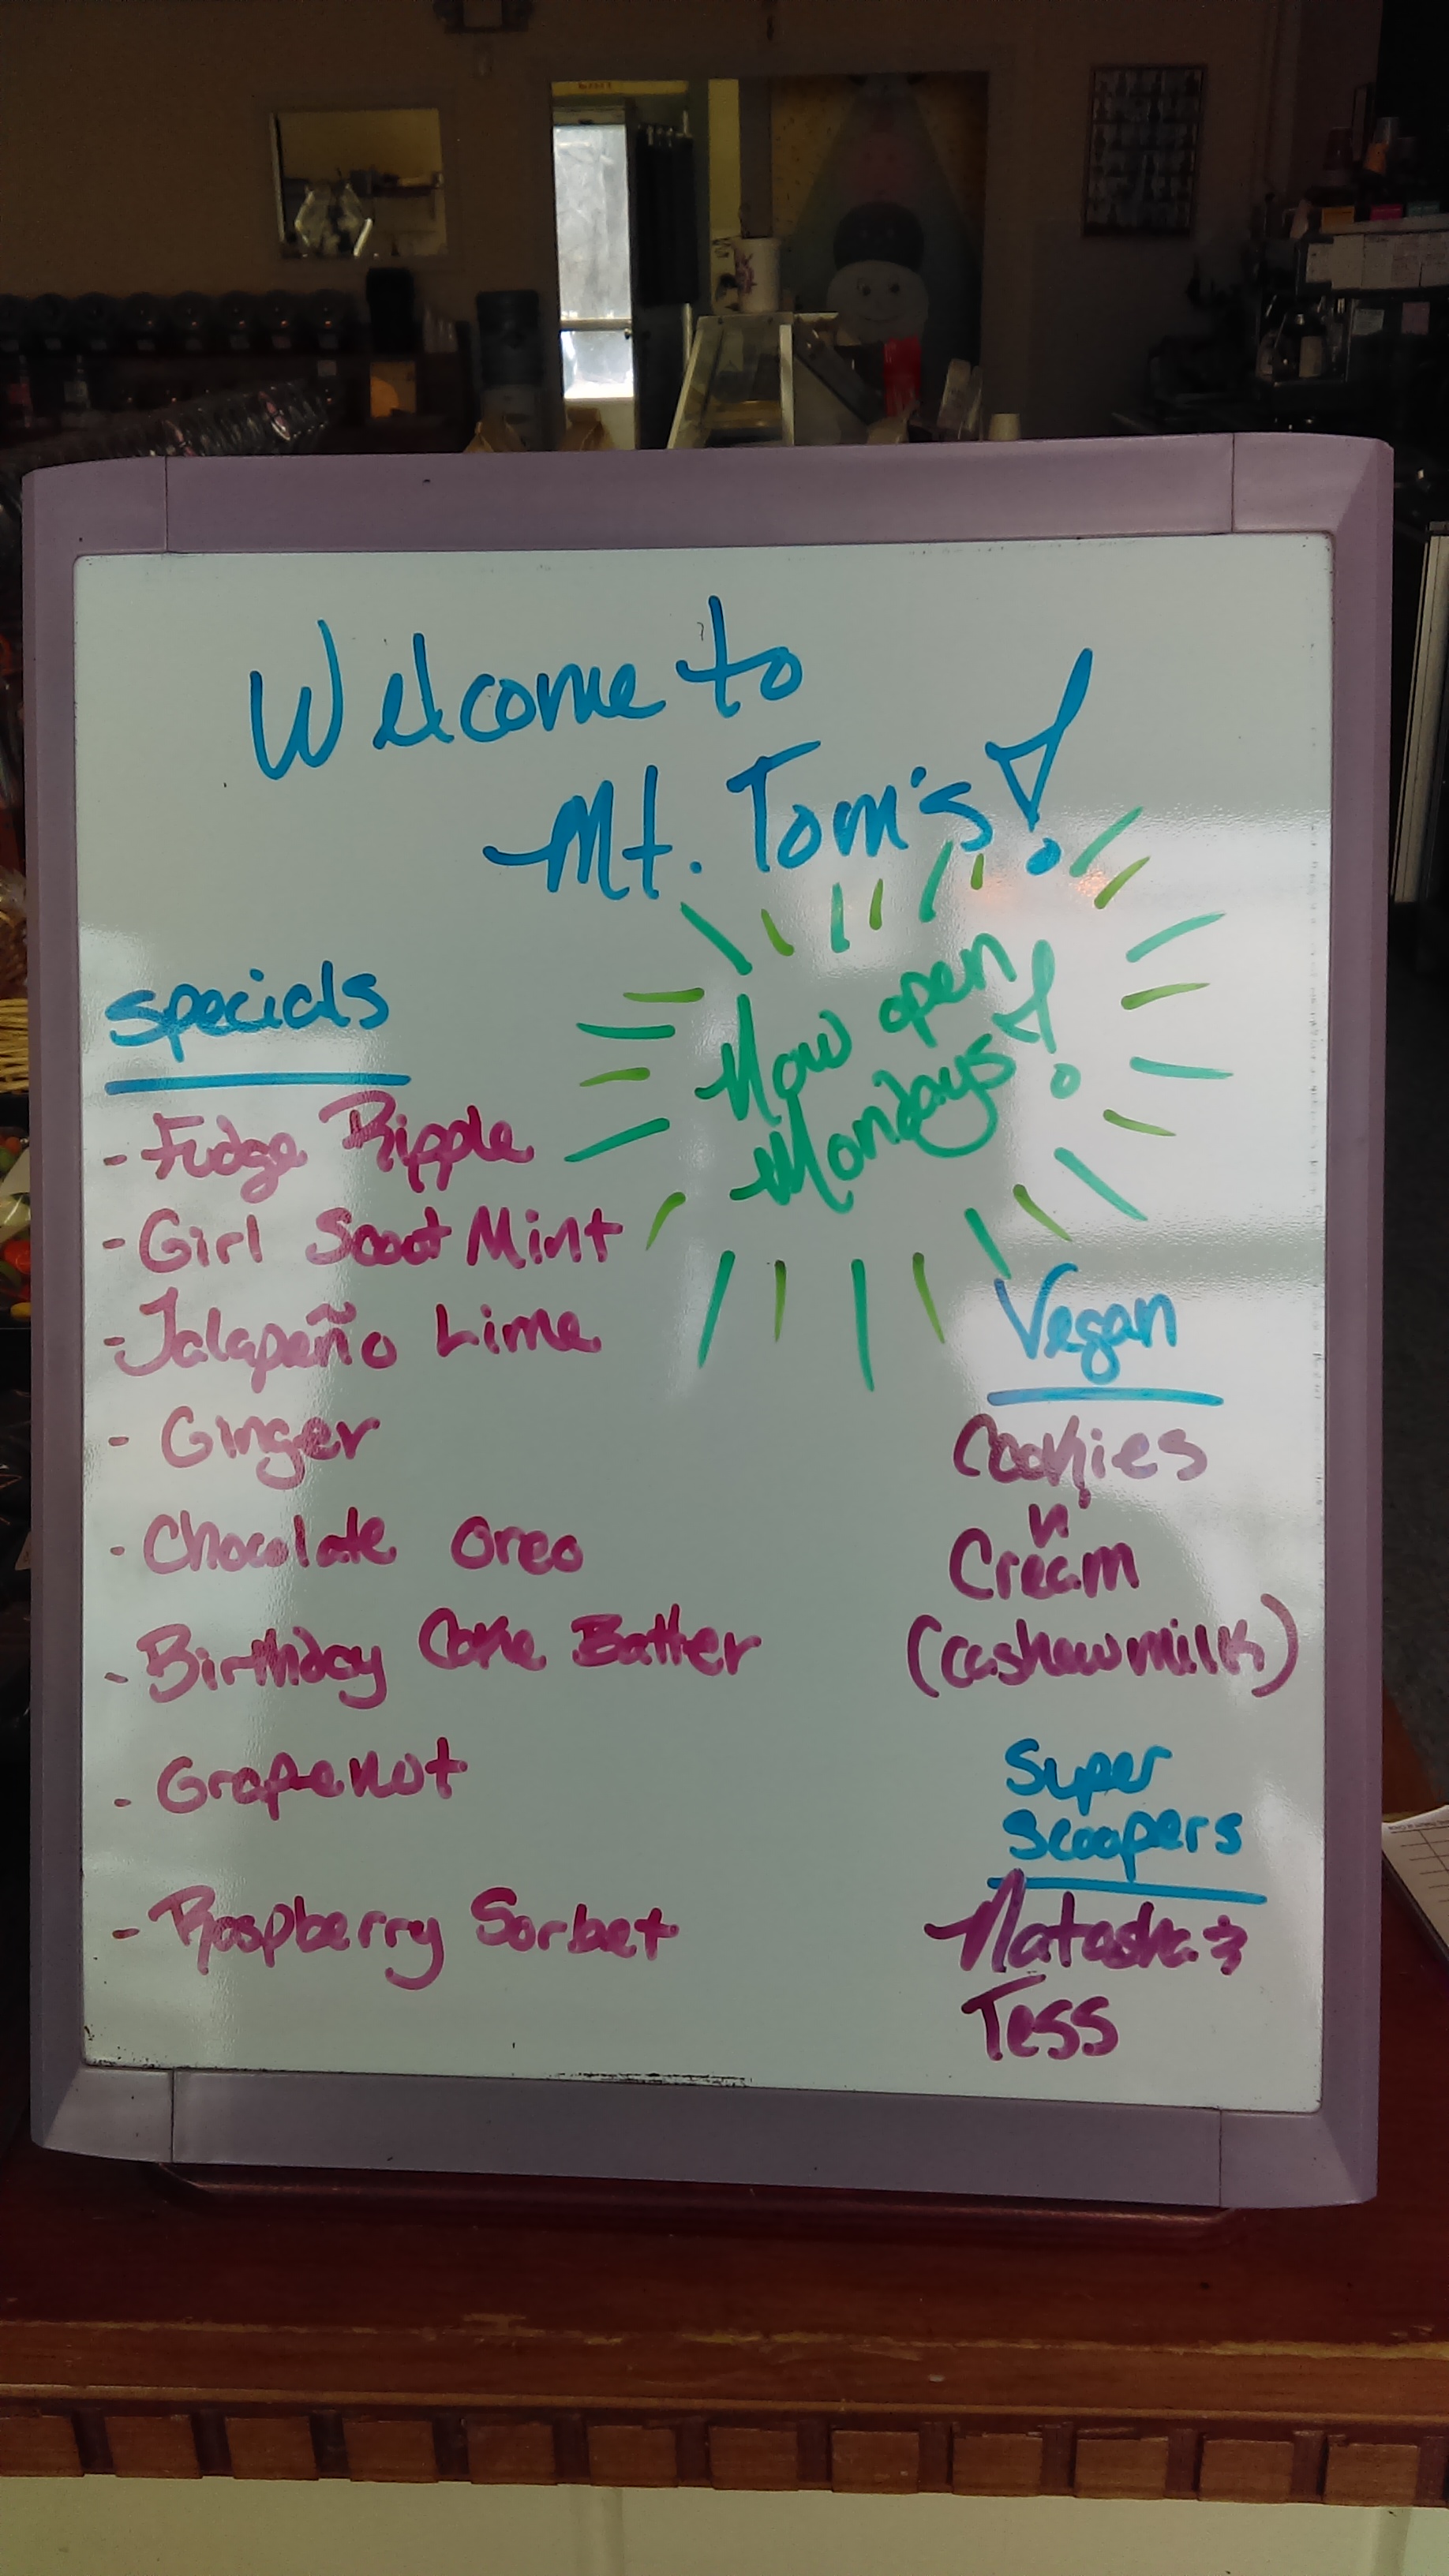 Welcome to
Mt. Tom's!
Now open
Mondays!
Specials
- Fudge Ripple
- Girl Scout Mint
- Jalapeño Lime
- Ginger
- Chocolate Oreo
- Birthday Cake Batter
- Grapenut
- Raspberry Sorbet
Vegan
Cookies
n
Cream
(cashewmilk)
Super
Scoopers
Natasha &
Tess